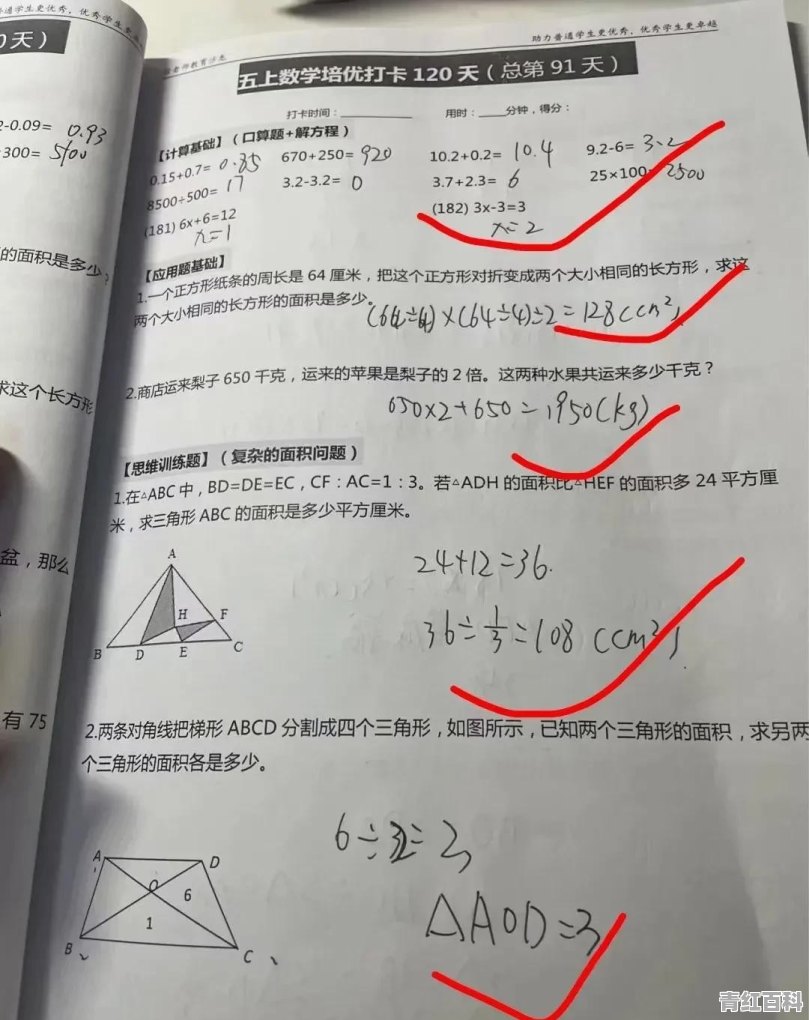 助力普通学生更优秀，优秀学生更卓越
五上数学培优打卡 120 天（总第 91 天）
打卡时间：____________ 用时：____分钟，得分：
【计算基础】（口算题+解方程）
0.15+0.7= 0.85 670+250= 920 10.2+0.2= 10.4 9.2-6= 3.2
8500÷500= 17 3.2-3.2= 0 3.7+2.3= 6 25×100= 2500
(181) 6x+6=12 (182) 3x-3=3
x=1 x=2
【应用题基础】
1.一个正方形纸条的周长是 64 厘米，把这个正方形对折变成两个大小相同的长方形，求这
两个大小相同的长方形的面积是多少。
(64÷4)×(64÷4)÷2=128(cm²)
2.商店运来梨子 650 千克，运来的苹果是梨子的 2 倍。这两种水果共运来多少千克？
650×2+650=1950(kg)
【思维训练题】（复杂的面积问题）
1.在△ABC 中，BD=DE=EC，CF：AC=1：3。若△ADH 的面积比△HEF 的面积多 24 平方厘
米，求三角形 ABC 的面积是多少平方厘米。
24+12=36.
36÷1/3=108(cm²)
A
H F
B D E C
2.两条对角线把梯形 ABCD 分割成四个三角形，如图所示，已知两个三角形的面积，求另两
个三角形的面积各是多少。
6÷2=3
△AOD=3
A D
O
6
1
B C
0天）
2-0.09= 0.93
300= 5100
的面积是多少
求这个长方形
盆，那么
有 75
青红百科